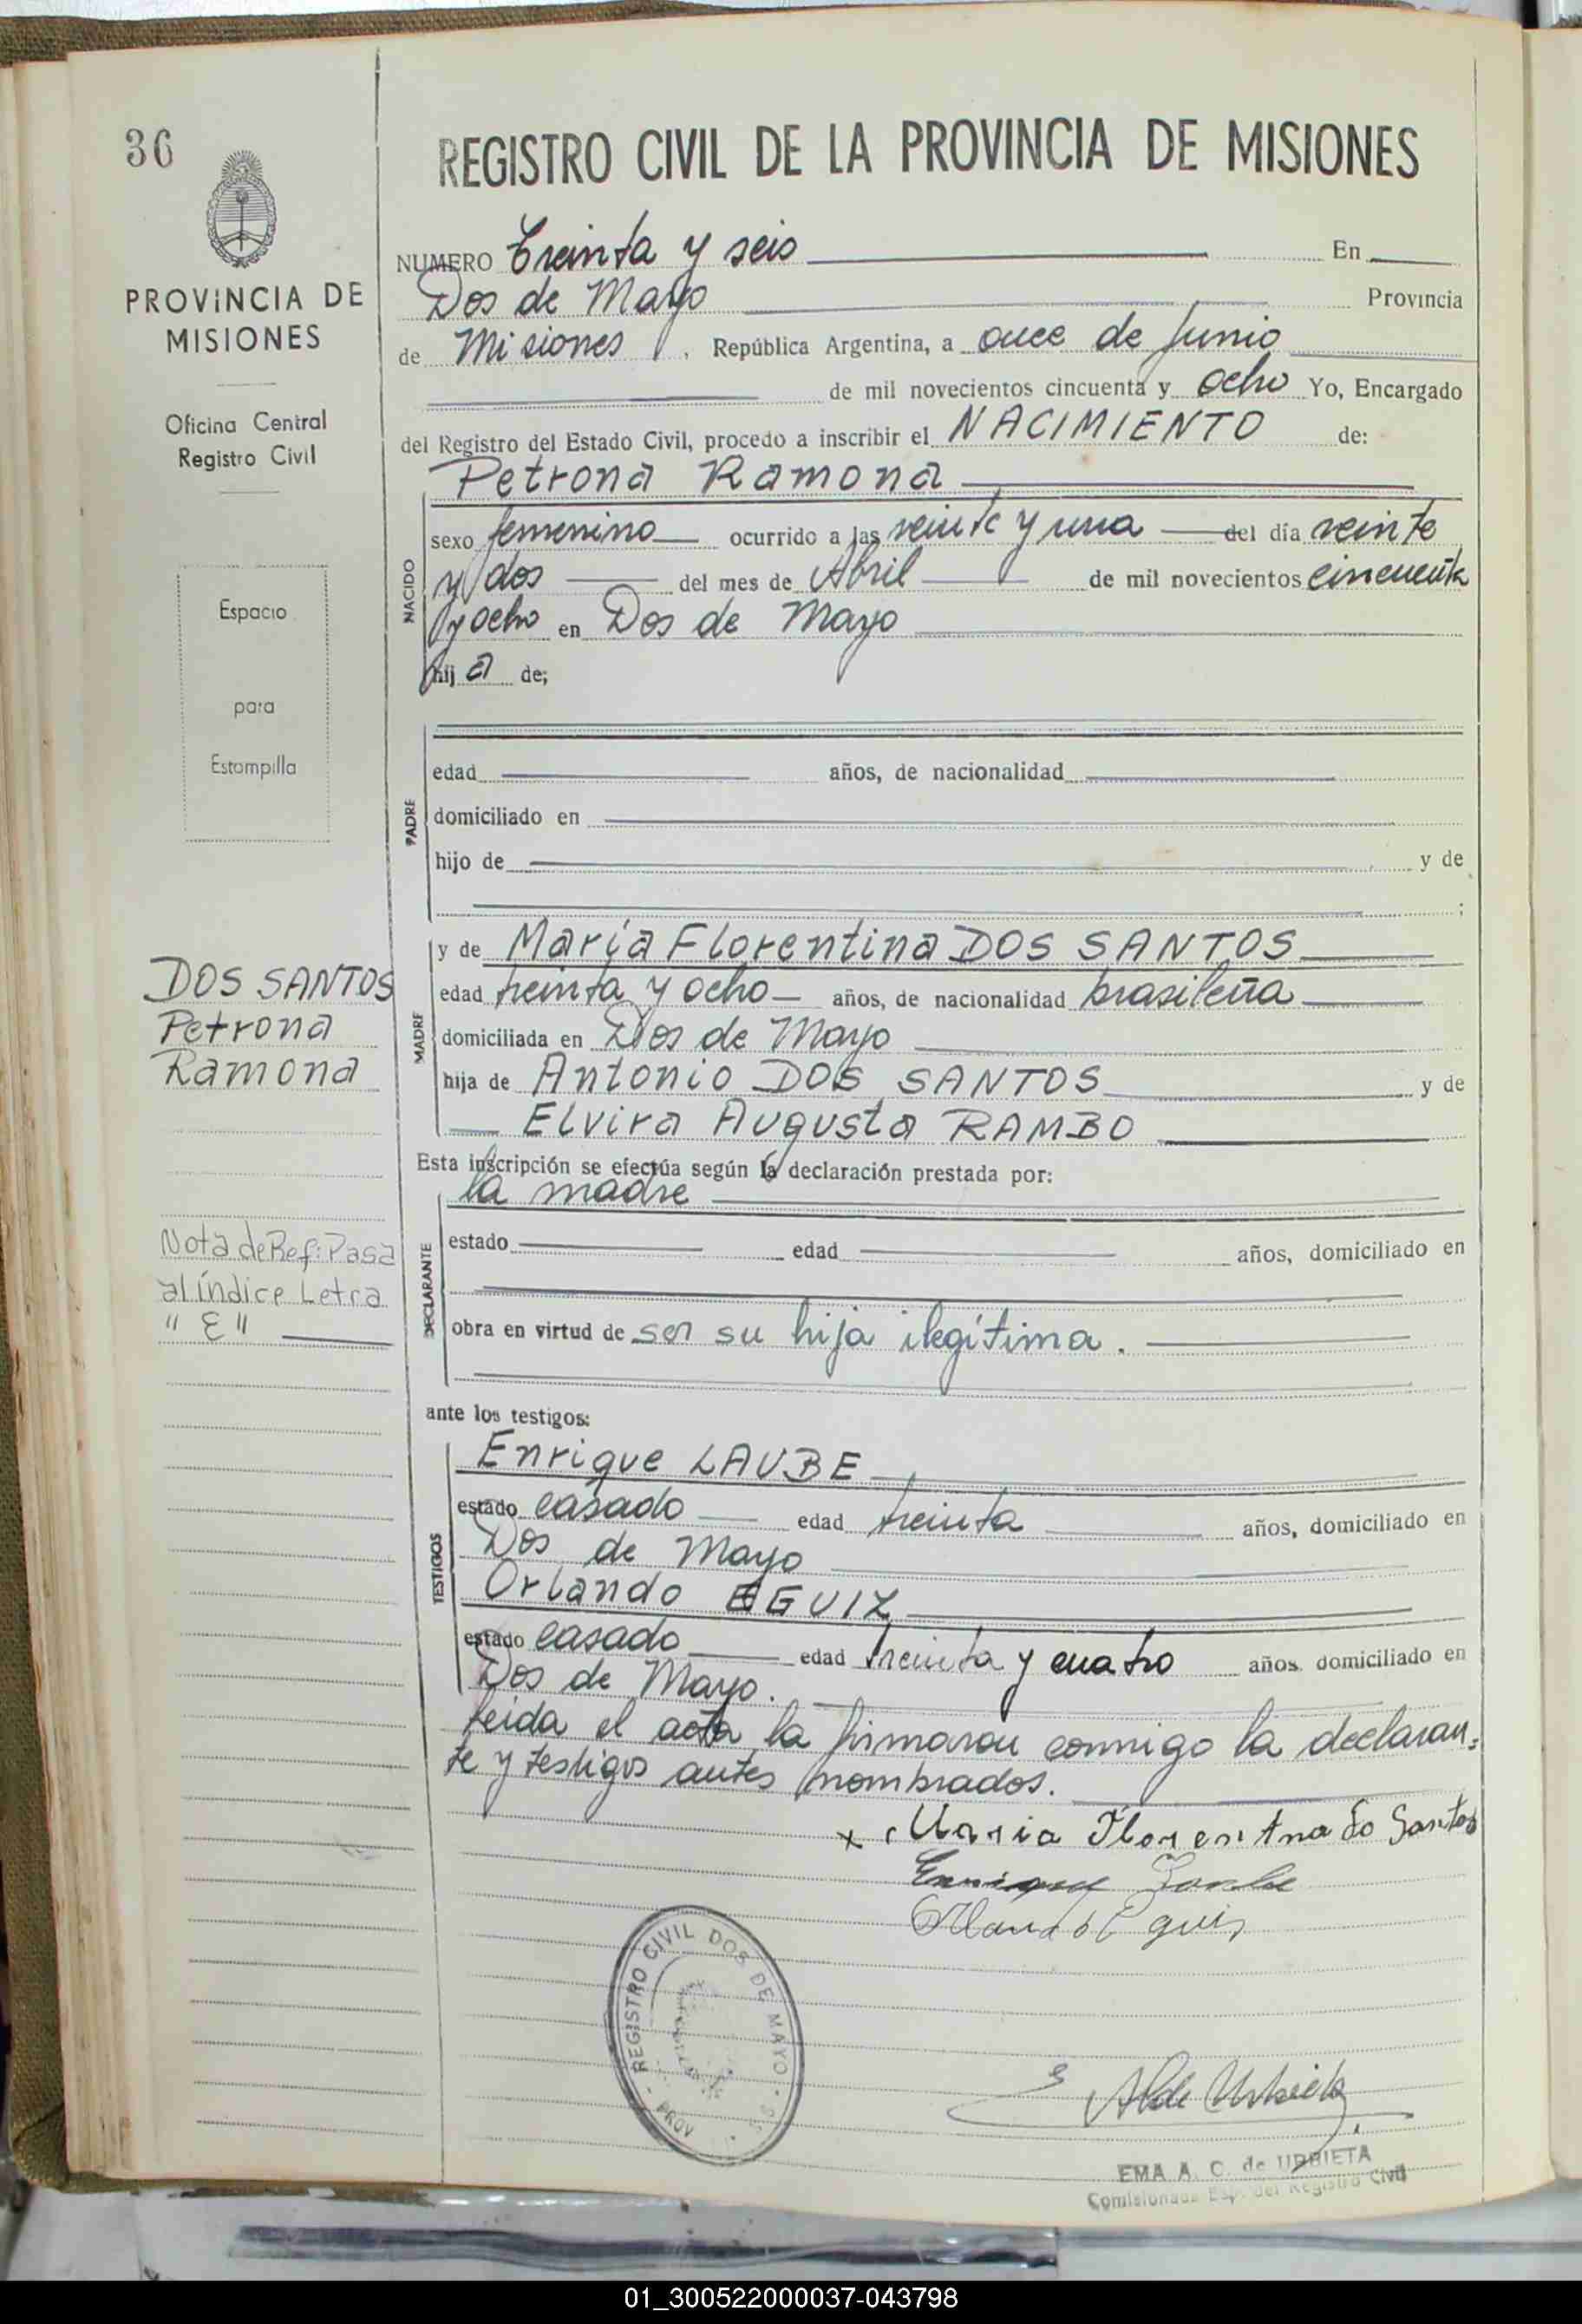 36
PROVINCIA DE
MISIONES
Oficina Central
Registro Civil
Espacio
para
Estampilla
DOS SANTOS
Petrona
Ramona
Nota de Ref: Pasa
al índice Letra
" E "
REGISTRO CIVIL DE LA PROVINCIA DE MISIONES
NUMERO Treinta y seis En
Dos de Mayo Provincia
de Misiones, República Argentina, a once de Junio
de mil novecientos cincuenta y ocho Yo, Encargado
del Registro del Estado Civil, procedo a inscribir el NACIMIENTO de:
Petrona Ramona
NACIDO
sexo femenino ocurrido a las veinte y una del día veinte
y dos del mes de Abril de mil novecientos cincuenta
y ocho en Dos de Mayo
hij a de;
PADRE
edad años, de nacionalidad
domiciliado en
hijo de y de
;
MADRE
y de María Florentina DOS SANTOS
edad treinta y ocho años, de nacionalidad brasileña
domiciliada en Dos de Mayo
hija de Antonio DOS SANTOS y de
Elvira Augusta RAMBO
Esta inscripción se efectúa según la declaración prestada por:
la madre
DECLARANTE
estado edad años, domiciliado en
obra en virtud de ser su hija ilegítima.
ante los testigos:
TESTIGOS
Enrique LAUBE
estado casado edad treinta años, domiciliado en
Dos de Mayo
Orlando EGUIZ
estado casado edad treinta y cuatro años domiciliado en
Dos de Mayo.
Leída el acta la firmaron conmigo la declaran-
te y testigos antes nombrados.
x Maria Florentna do Santos
REGISTRO CIVIL DOS DE MAYO
PROV
EMA A. C. de URBIETA
Comisionada Esp. del Registro Civil
01_300522000037-043798